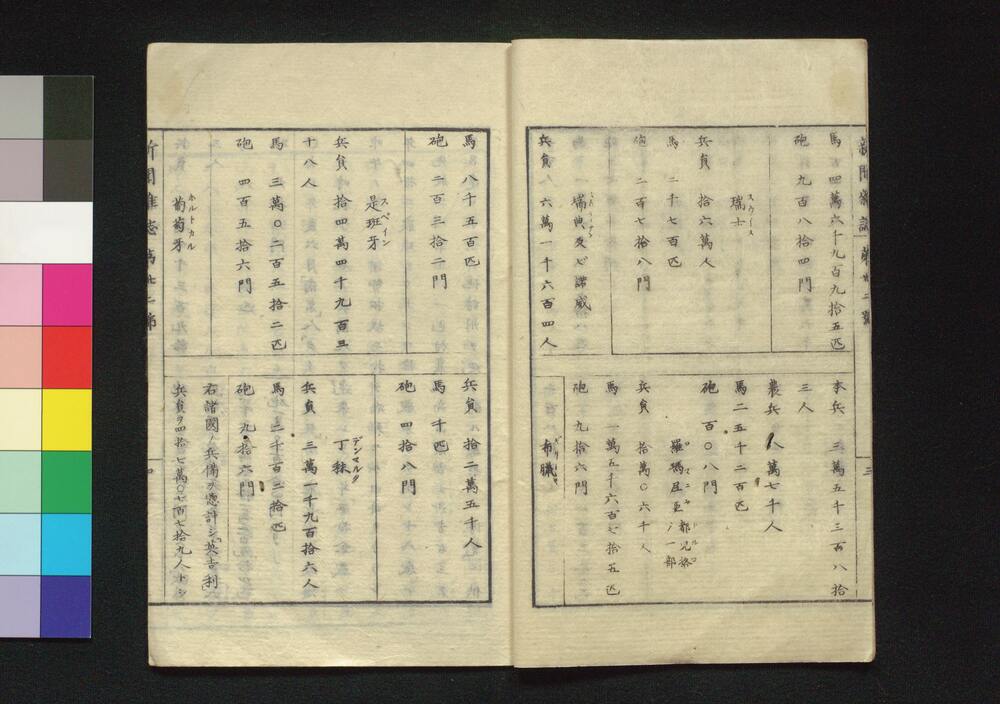 新聞雜誌 第廿二號
萬六千九百九拾五匹
砲 九百八拾四門
瑞士
スウィース
兵員 拾六萬人
馬 二千七百匹
砲 二百七拾八門
瑞典及ビ諾威
兵員 六萬一千六百四人
本兵 三萬五千三百八拾
三人
農兵 八萬七千人
馬二五千二百匹
砲 百〇八門
都兒格ノ一部
兵員 拾萬〇六千人
馬 一萬五千六百七拾五匹
砲 九拾六門
希臘
三
馬 八千五百匹
砲 二百三拾二門
是班牙
スペイン
兵員 拾四萬四千九百三
十八人
馬 三萬〇二百五拾二匹
砲 四百五拾六門
葡萄牙
ホルトカル
兵員 拾二萬五千人
馬 千匹
砲 四拾八門
丁抹
デンマルク
兵員 三萬一千九百拾六人
馬 二千百二拾匹
砲 九拾六門
右諸國ノ兵備ヲ惣計シ英吉利
兵員ヲ四拾七萬〇七百七拾九人トシ
新聞雜志
四